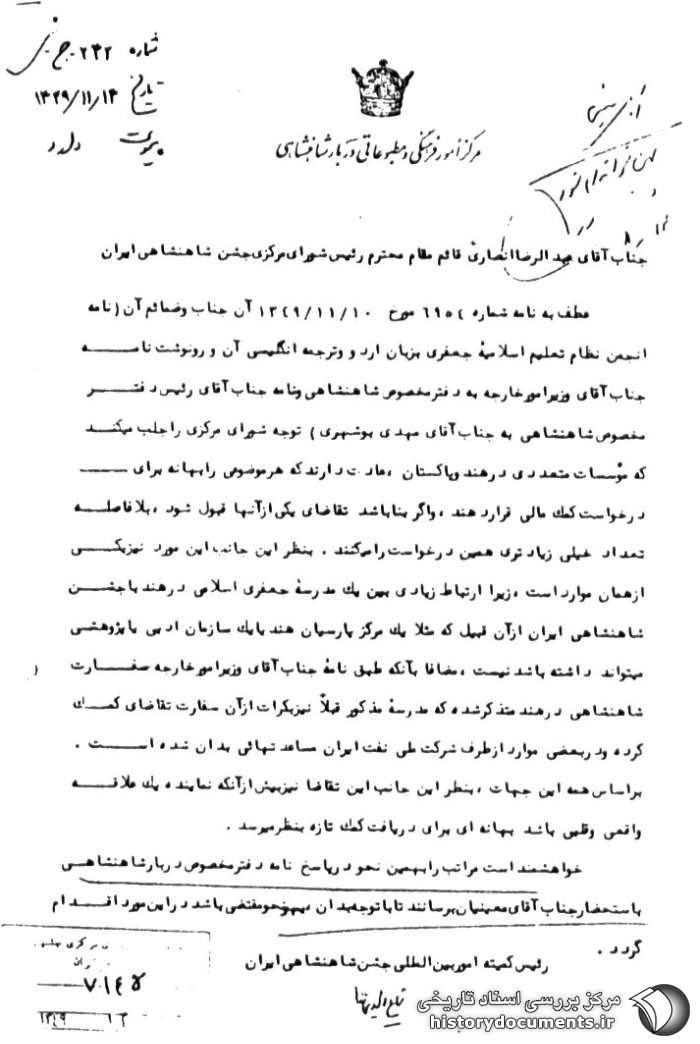 شماره ۲۴۲-ج
تاریخ ۱۳۴۹/۱۱/۱۴
پیوست دارد
مرکز امور فرهنگی و مطبوعاتی دربار شاهنشاهی
جناب آقای عبدالرضا انصاری قائم مقام محترم رئیس شورای مرکزی جشن شاهنشاهی ایران
عطف به نامه شماره ٦٩٥٤ مورخ ١٣٤٩/١١/١٠ آن جناب وضمائم آن (نامه
انجمن نظام تعلیم اسلامیهٔ جعفری بزبان اردو وترجمه انگلیسی آن و رونوشت نامـــه
جناب آقای وزیر امور خارجه به دفتر مخصوص شاهنشاهی ونامه جناب آقای رئیس دفتـــر
مخصوص شاهنشاهی به جناب آقای مهدی بوشهری) توجه شورای مرکزی را جلب میکنـد
که مؤسسات متعددی در هند وپاکستان ، عادت دارند که هر موضوعی را بهانه برای
درخواست کمك مالی قرار دهند ، واگر بنا باشد تقاضای یکی از آنها قبول شود ، بلافاصلــه
تعداد خیلی زیادتری همین درخواست را میکنند . بنظر این جانب این مورد نیزیکــی
از همان موارد است ، زیرا ارتباط زیادی بین یك مدرسهٔ جعفری اسلامی در هند با جشــن
شاهنشاهی ایران از آن قبیل که مثلا یك مرکز پارسیان هند یا یك سازمان ادبی یا پژوهشی
میتواند داشته باشد نیست ، مضافا بآنکه طبق نامهٔ جناب آقای وزیر امور خارجه سفــارت
شاهنشاهی در هند متذکر شده که مدرسهٔ مذکور قبلاً نیز بکرات از آن سفارت تقاضای کمــك
کرده ودر بعضی موارد از طرف شرکت ملی نفت ایران مساعدتهائی بدان شده اســـت .
براساس همه این جهات ، بنظر این جانب این تقاضا نیز بیش از آنکه نماینده یك علاقــه
واقعی وقلبی باشد بهانه ای برای دریافت کمك تازه بنظر میرسد .
خواهشمند است مراتب را بهمین نحو در پاسخ نامه دفتر مخصوص دربار شاهنشاهــی
باستحضار جناب آقای معینیان برسانند تا با توجه بدان ، بهر نحو مقتضی باشد در این مورد اقــدام
گردد .
رئیس کمیته امور بین المللی جشن شاهنشاهی ایران
٧١٤٥
١٣٤٩
مرکز بررسی اسناد تاریخی
historydocuments.ir